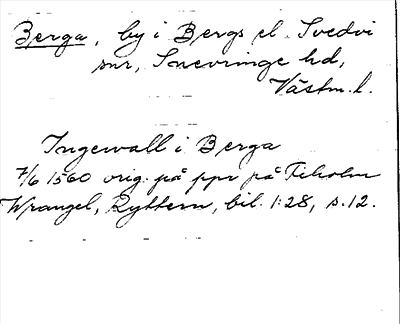 Berga, by i Bergs el. Svedvi
snr, Snevringe hd,
Västm. l.
Ingewall i Berga
7/6 1560 orig. på ppr på Tiholm
Wrangel, Ryttern, bil. 1:28, s. 12.